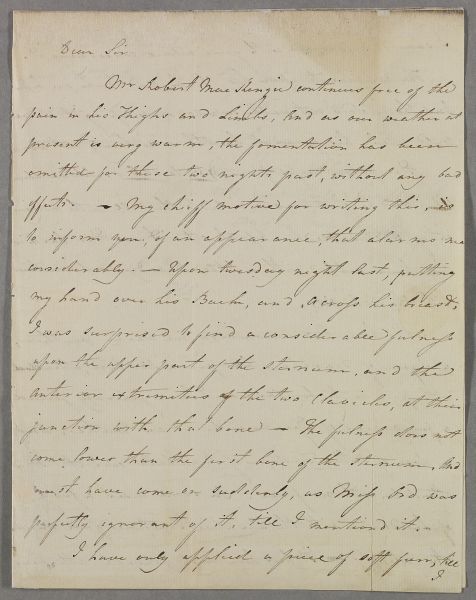 Dear Sir
Mr Robert MacKenzie continues free of the
pain in his Thighs and Limbs, and as our weather at
present is very warm, the fomentation has been
omitted for these two nights past, without any bad
effects. — My chief motive for writing this, is
to inform you, of an appearance, that alarms me
considerably. — Upon tuesday night last, putting
my hand over his Back, and across his breast,
I was surprised to find a considerable fulness
upon the upper part of the sternum, and the
anterior extremities of the two Clavicles, at their
junction with that bone — The fulness does not
come lower than the first bone of the sternum, And
must have come on suddenly, as Miss Ord was
perfectly ignorant of it, till I mentioned it. —
I have only applied a piece of soft furr, till
I